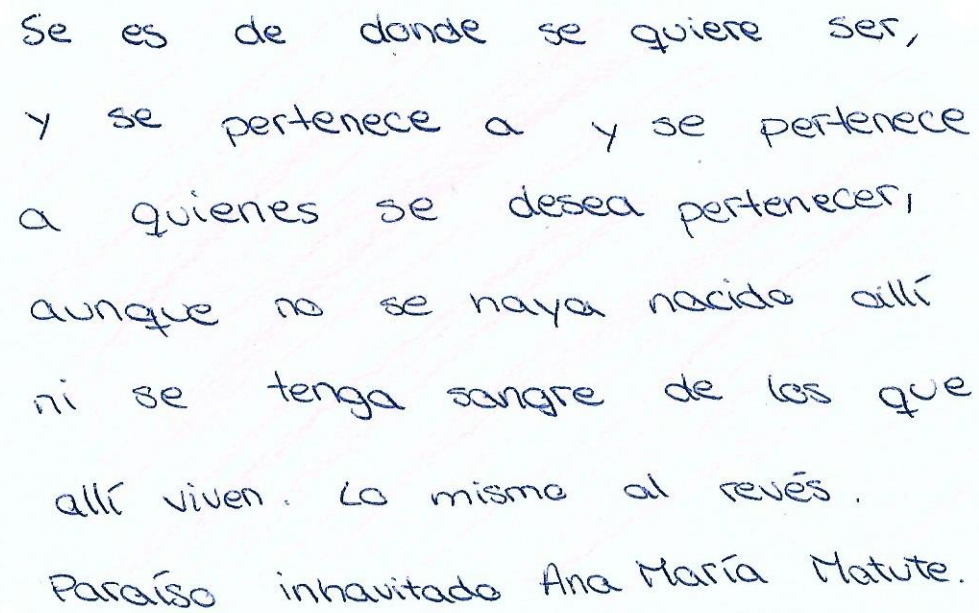 Se es de donde se quiere ser,
y se pertenece a y se pertenece
a quienes se desea pertenecer,
aunque no se haya nacido allí
ni se tenga sangre de los que
allí viven. Lo mismo al revés.
Paraíso inhavitado Ana María Matute.